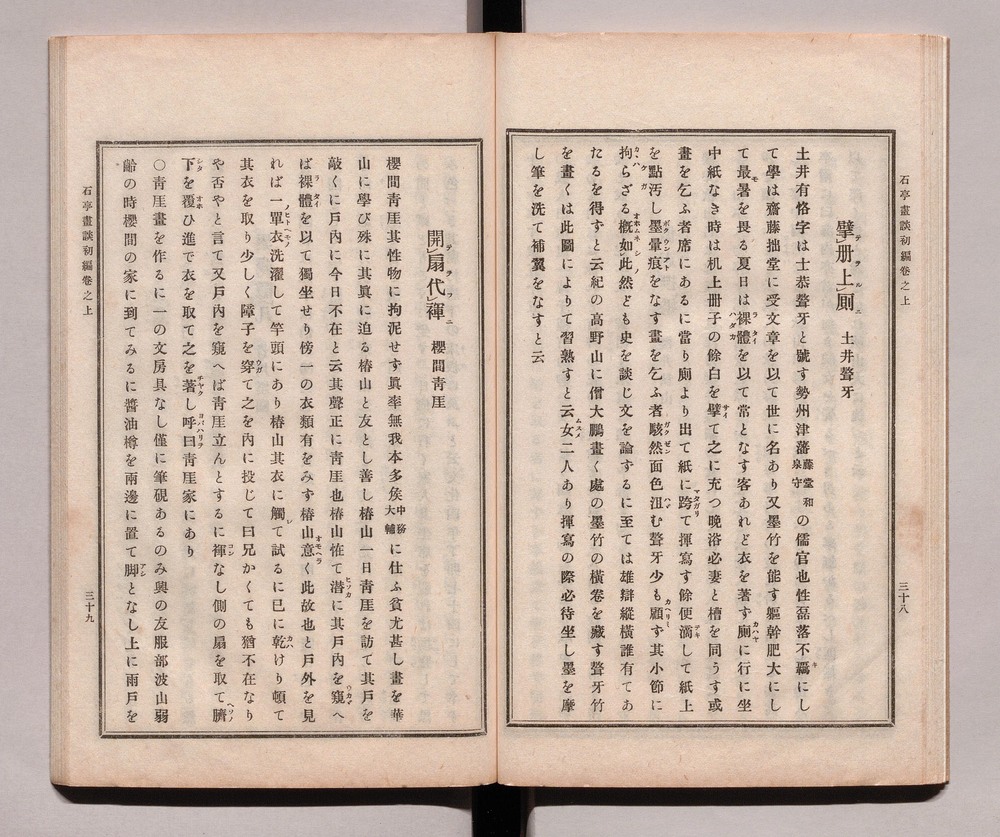 石亭畫談初編卷之上
三十八
擘册上厠　土井聱牙
土井有恪字は士恭聱牙と號す勢州津藩藤堂和泉守の儒官也性磊落不羈にし
て學は齋藤拙堂に受文章を以て世に名あり又墨竹を能す軀幹肥大にし
て最暑を畏る夏日は裸體を以て常となす客あれど衣を著す廁に行に坐
中紙なき時は机上册子の餘白を擘て之に充つ晚浴必妻と槽を同うす或
畫を乞ふ者席にあるに當り廁より出て紙に跨て揮寫す餘便滴して紙上
を點汚し墨暈痕をなす畫を乞ふ者駭然面色沮む聱牙少も顧ず其小節に
拘らざる概如此然ども史を談じ文を論ずるに至ては雄辯縱橫誰有てあ
たるを得ずと云紀の高野山に僧大鵬畫く處の墨竹の橫卷を藏す聱牙竹
を畫くは此圖によりて習熟すと云女二人あり揮寫の際必待坐し墨を摩
し筆を洗て補翼をなすと云
開扇代褌　櫻間靑厓
櫻間靑厓其性物に拘泥せず眞率無我本多矦中務大輔に仕ふ貧尤甚し畫を華
山に學び殊に其眞に迫る椿山と友とし善し椿山一日靑厓を訪て其戸を
敲くに戸內に今日不在と云其聲正に靑厓也椿山恠て潜に其戸內を窺へ
ば裸體を以て獨坐せり傍一の衣類有をみず椿山意く此故也と戸外を見
れば一單衣洗濯して竿頭にあり椿山其衣に觸て試るに已に乾けり頓て
其衣を取り少しく障子を穿て之を內に投じて曰兄かくても猶不在なり
や否やと言て又戸內を窺へば靑厓立んとするに褌なし側の扇を取て臍
下を覆ひ進で衣を取て之を著し呼曰靑厓家にあり
〇靑厓畫を作るに一の文房具なし僅に筆硯あるのみ輿の友服部波山弱
齡の時櫻間の家に到てみるに醬油樽を兩邊に置て脚となし上に雨戸を
石亭畫談初編卷之上
三十九